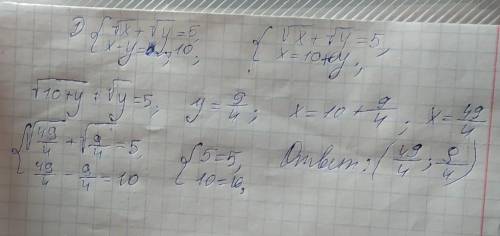 D) {√x + √y = 5, {√x + √y = 5,
x - y = 10, x = 10 + y,
√10+y + √y = 5, y = 9/4; x = 10 + 9/4; x = 49/4
{√49/4 + √9/4 = 5 {5 = 5,
49/4 - 9/4 = 10 10 = 10,
Ответ: (49/4; 9/4)